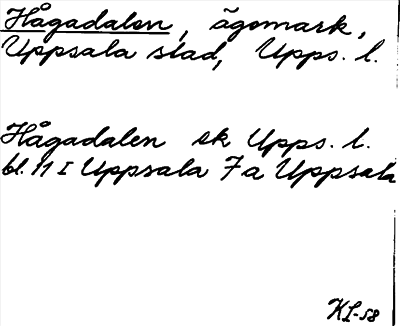 Hågadalen, ägomark,
Uppsala stad, Upps. l.
Hågadalen ek Upps. l.
bl. 11 I Uppsala 7 a Uppsala
KL-58